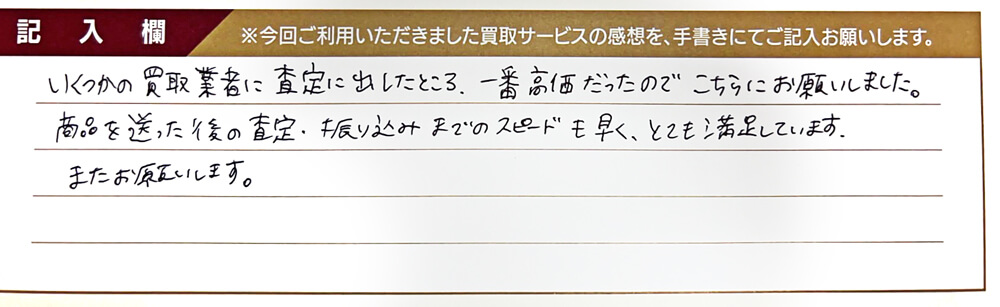 記入欄
※今回ご利用いただきました買取サービスの感想を、手書きにてご記入お願いします。
いくつかの買取業者に査定に出したところ、一番高価だったのでこちらにお願いしました。
商品を送った後の査定・振り込みまでのスピードも早く、とても満足しています.
またお願いします。